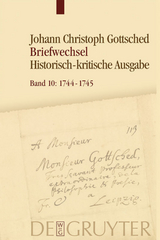 Johann Christoph Gottsched
Briefwechsel
Historisch-kritische Ausgabe
Band 10: 1744–1745
A Monsieur
Monsieur Gottsched,
Professeur
Philosophie &
DE GRUYTER